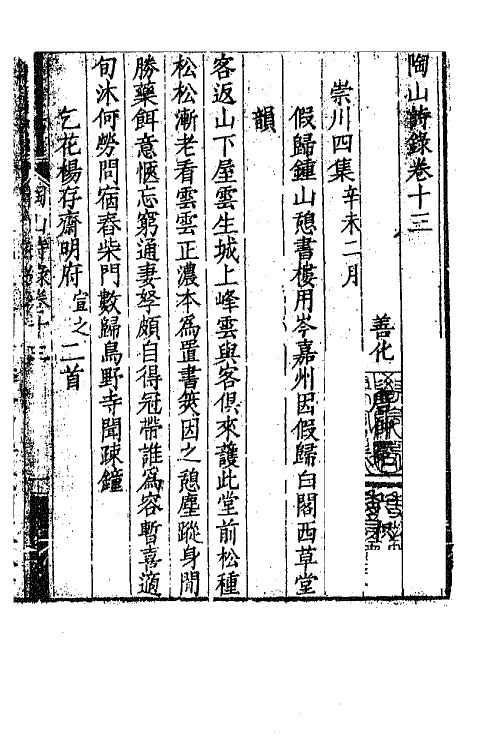 陶山詩錄卷十三
善化
崇川四集辛未二月
假歸鍾山憩書樓用岑嘉州因假歸白閣西草堂
韻
客返山下屋雲生城上峰雲與客俱來護此堂前松種
松松漸老看雲雲正濃本為置書筴因之憩塵蹤身閒
勝藥餌意愜忘窮通妻孥頗自得冠帶誰為容暫喜適
旬沐何勞問宿舂柴門數歸鳥野寺聞疎鐘
乞花楊存齋明府宜之二首